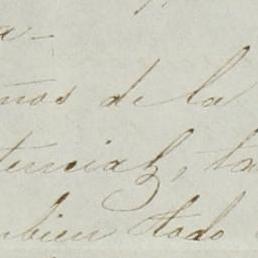 a-
mos de la
tencial, ta
mbien todo